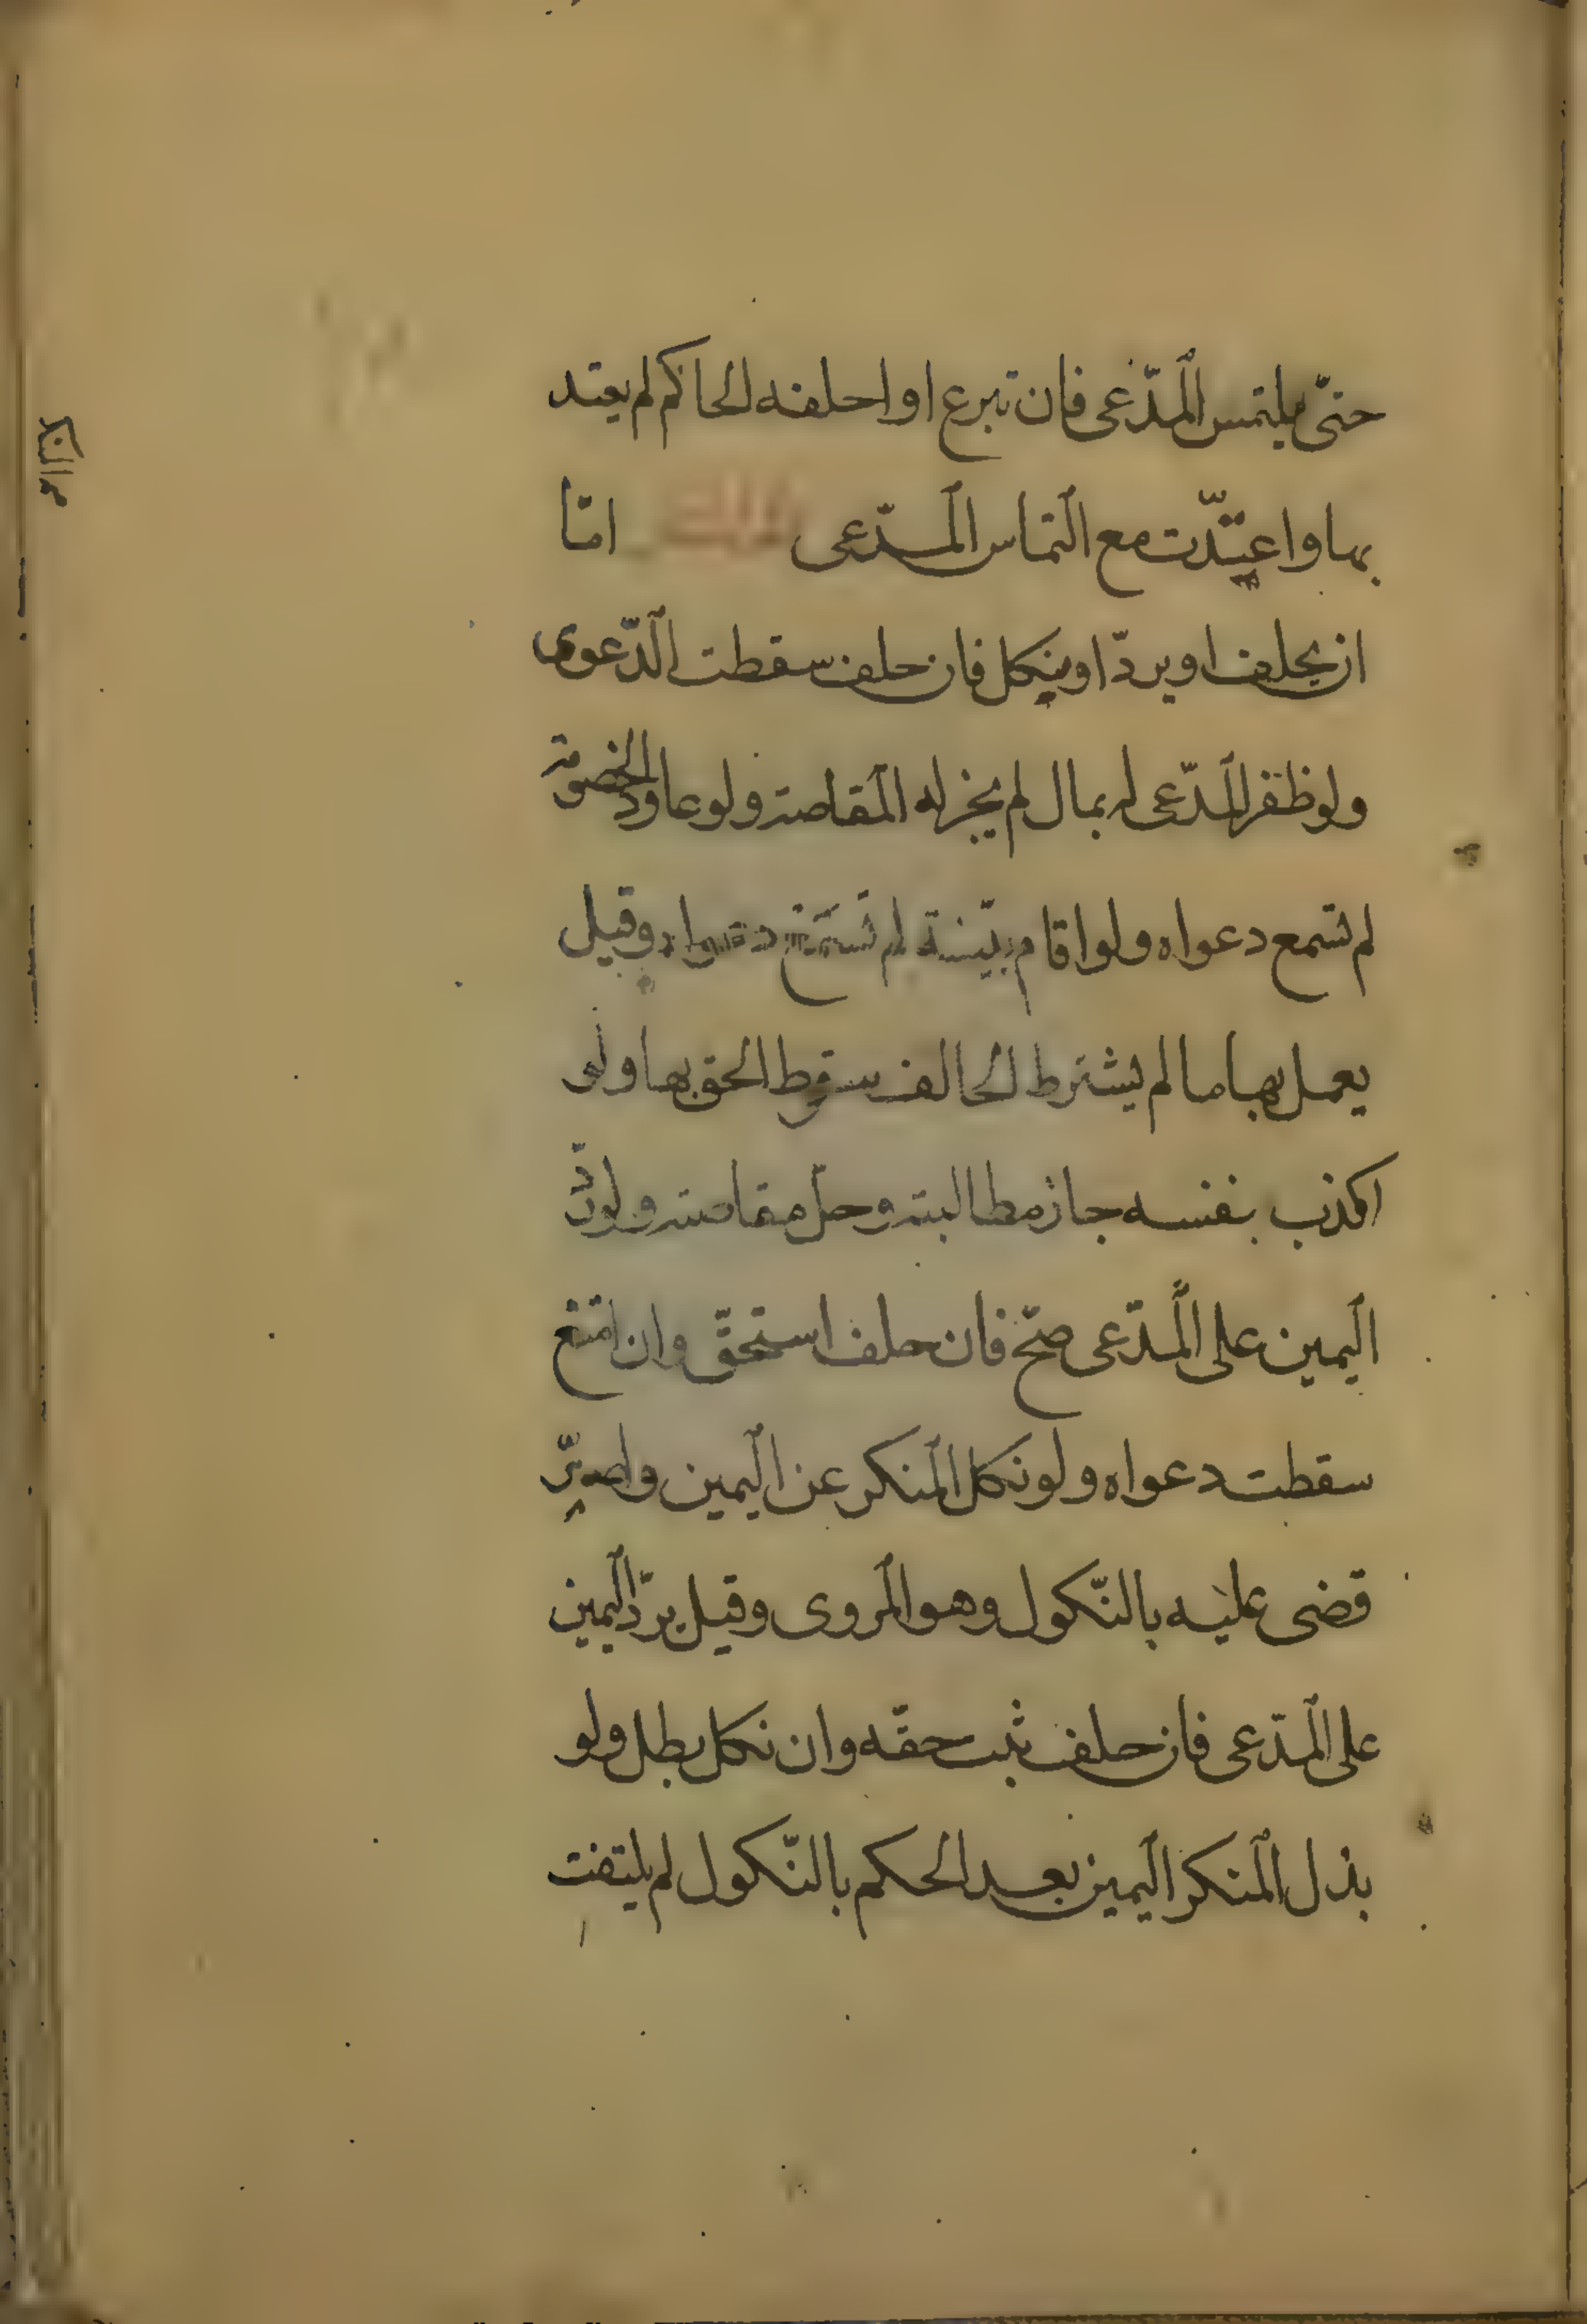 حتّى يلتمس المدّعى فان تبرع او احلفه الحاكم لم يعتد
بها واعيدت مع التماس المدّعى امّا
ان يحلف او يردّ او ينكل فان حلف سقطت الدّعوى
ولو ظفر المدّعى له بمال لم يجز له المقاصة ولو عاود الخصومة
لم تسمع دعواه ولو اقام بيّنة لم تسمع دعواه وقيل
يعمل بها ما لم يشترط الحالف سقوط الحق بها ولو
اكذب بنفسه جاز مطالبته وحلّ مقاصته ولو ردّ
اليمين على المدّعى صحّ فان حلف استحقّ وان امتنع
سقطت دعواه ولو نكل المنكر عن اليمين واصرّ
قضى عليه بالنّكول وهو المروى وقيل يردّ اليمين
على المدّعى فان حلف ثبت حقّه وان نكل بطل ولو
بذل المنكر اليمين بعد الحكم بالنّكول لم يلتفت